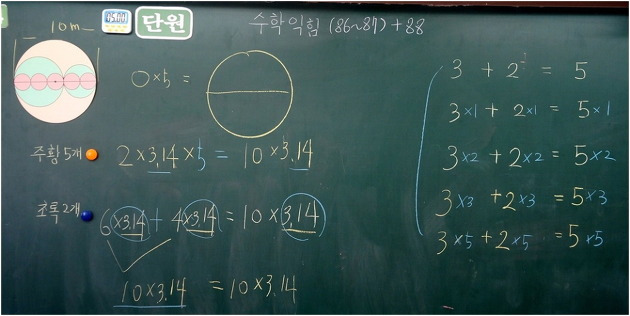 10m
05:00
단원
수학익힘 (86~87) + 88
○ × 5 =
주황 5개
2 × 3.14 × 5 = 10 × 3.14
초록 2개
6 × 3.14 + 4 × 3.14 = 10 × 3.14
10 × 3.14 = 10 × 3.14
3 + 2 = 5
3×1 + 2×1 = 5×1
3×2 + 2×2 = 5×2
3×3 + 2×3 = 5×3
3×5 + 2×5 = 5×5